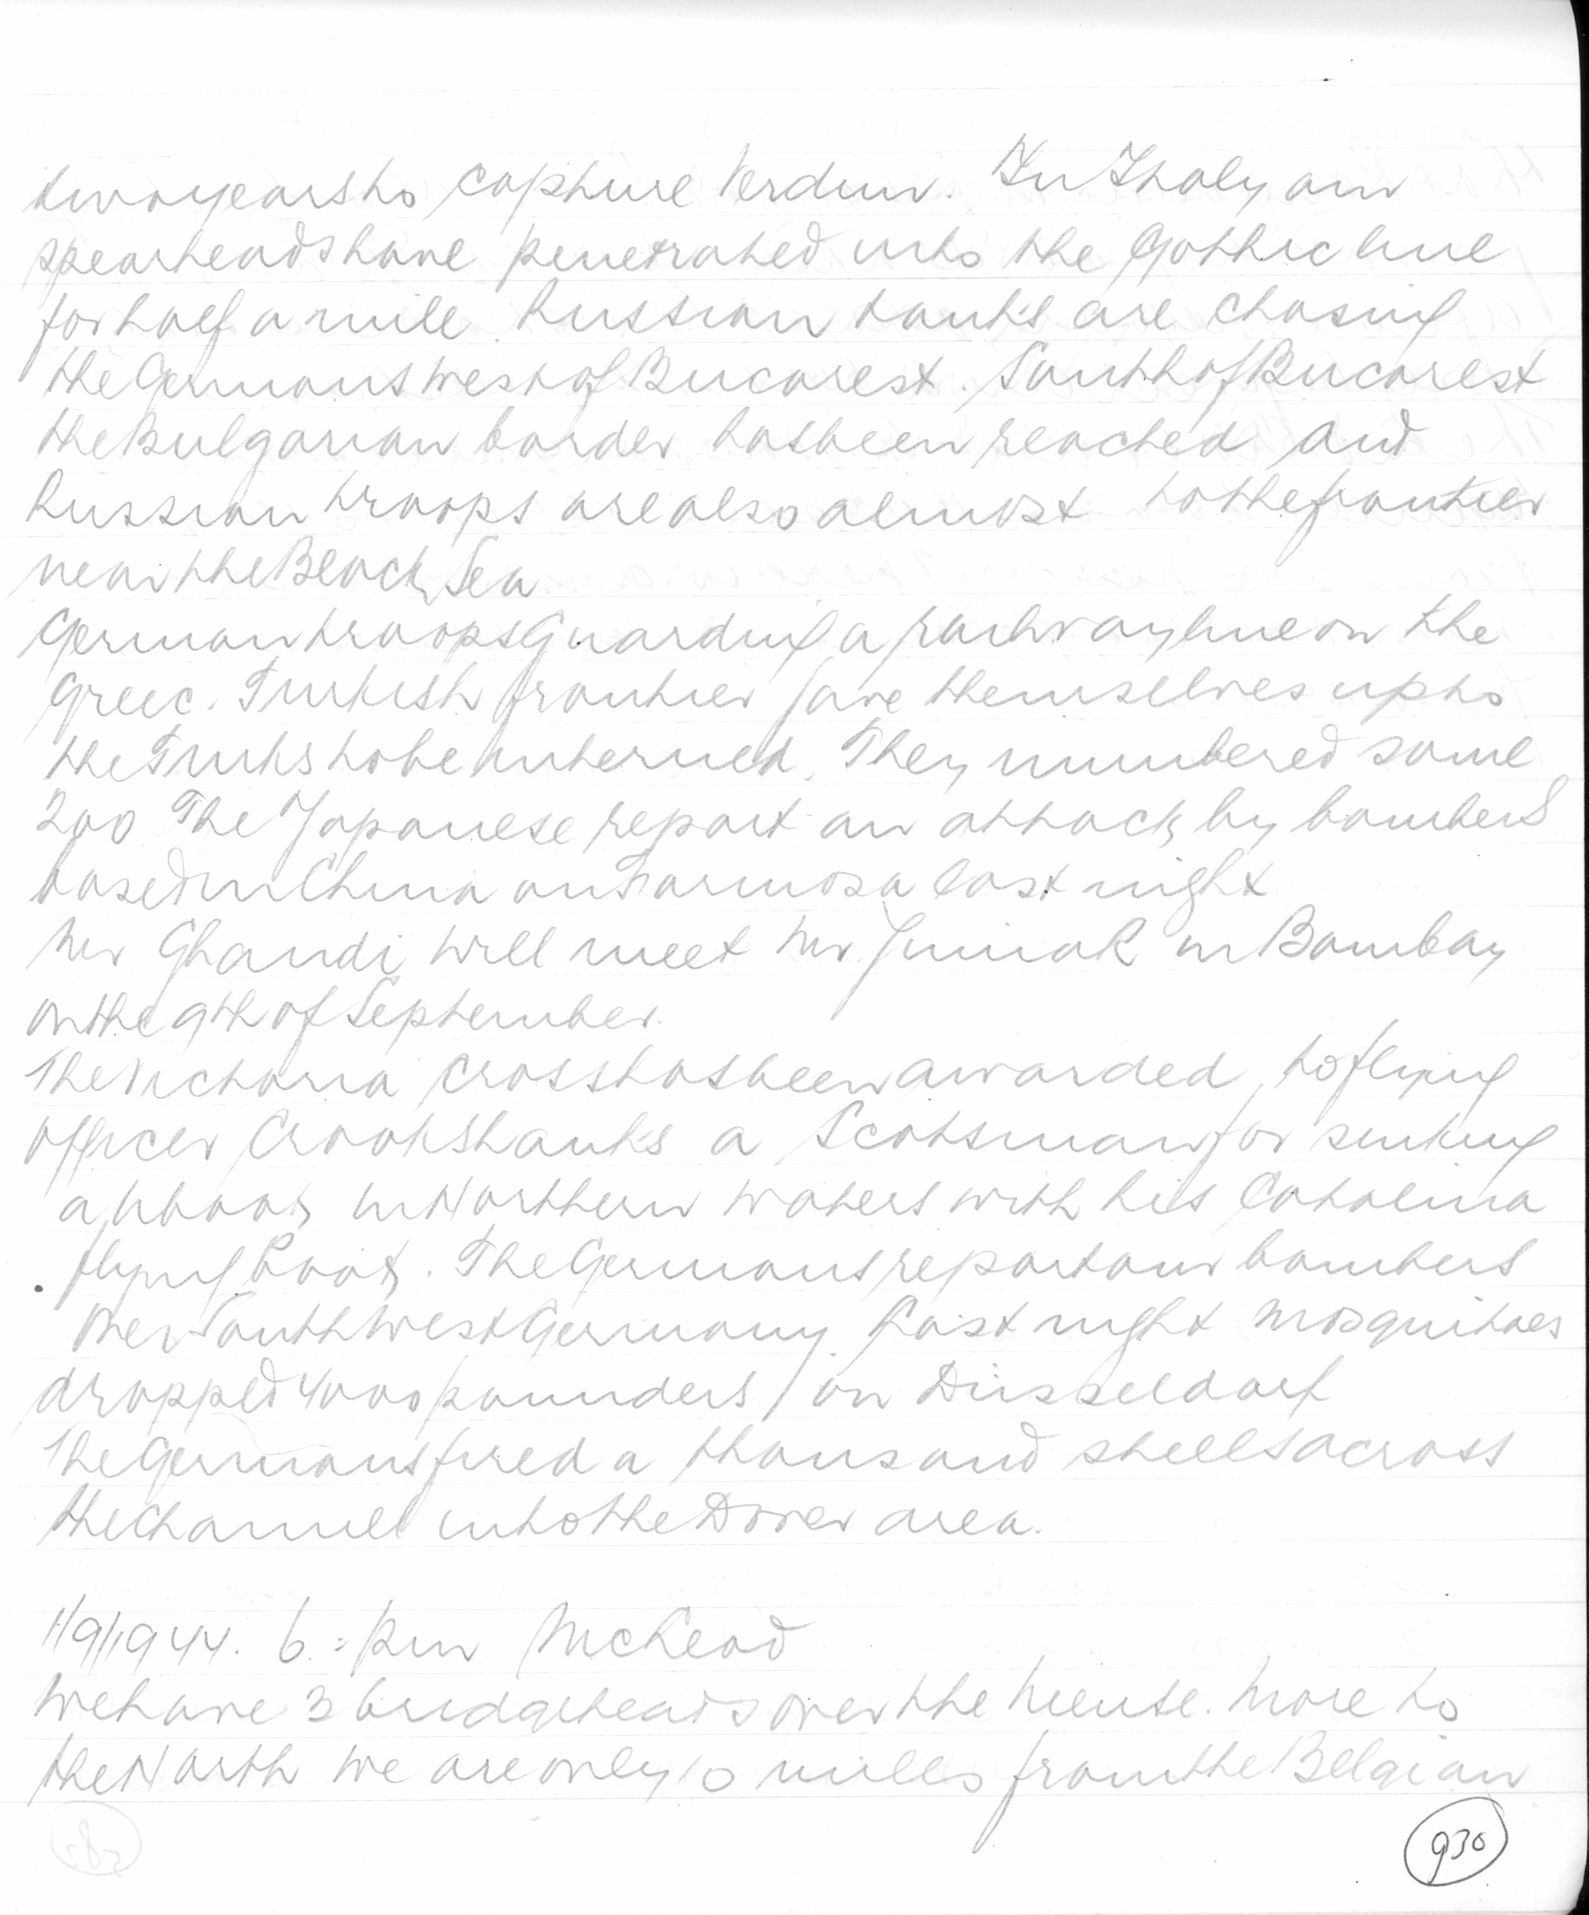 two years to capture Verdun. In Italy our
spearheads have penetrated into the Gothic line
for half a mile. Russian tanks are chasing
the Germans west of Bucarest. South of Bucarest
the Bulgarian border has been reached and
Russian troops are also almost to the frontier
near the Black Sea
German troops guarding a railway line on the
Greec. Turkish frontier gave themselves up to
the Turks to be interned. They numbered some
200 The Japanese report an attack by bombers
based in China on Formosa last night
Mr Ghandi will meet Mr Jinnah in Bombay
on the 9th of September.
The Victoria Cross has been awarded to flying
officer Crookshanks a Scotsman for sinking
a Uboat in Northern waters with his Catalina
flying boat. The Germans report our bombers
over South West Germany. Last night Mosquitoes
dropped 4000 pounders on Düsseldorf
The Germans fired a thousand shells across
the Channel into the Dover area.
1/9/1944. 6.= pm McLeod
We have 3 bridgeheads over the Meuse. More to
the North we are only 10 miles from the Belgian
930